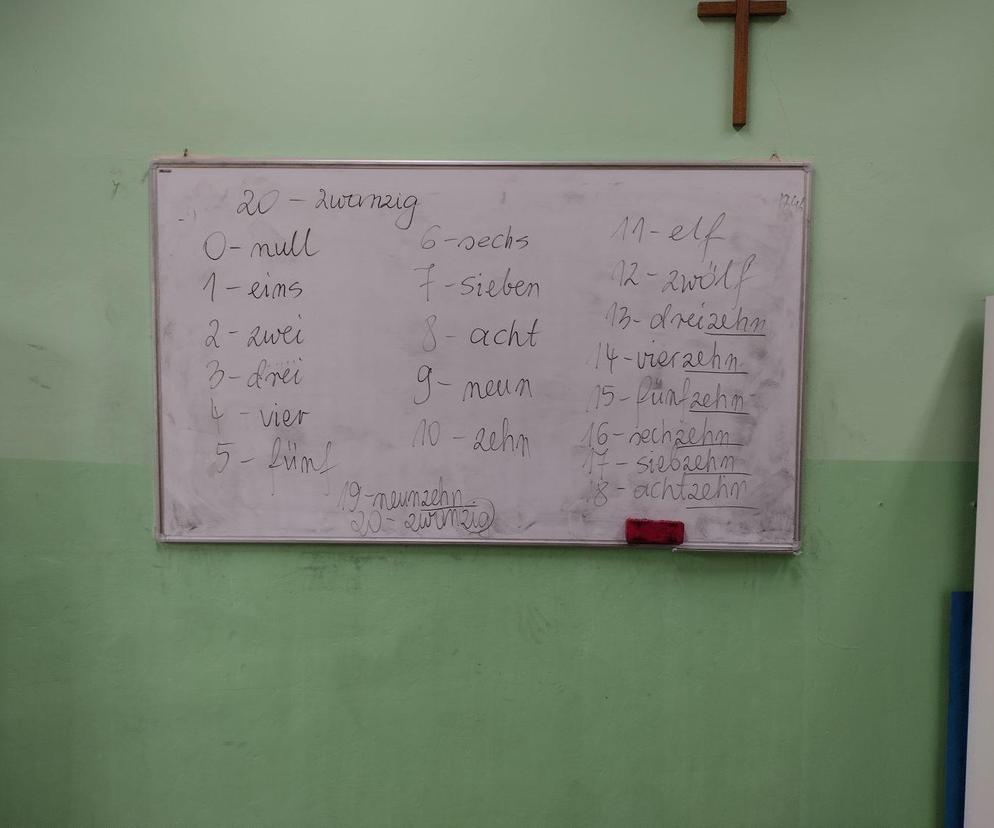 20 - zwanzig
0 - null
1 - eins
2 - zwei
3 - drei
4 - vier
5 - fünf
6 - sechs
7 - sieben
8 - acht
9 - neun
10 - zehn
11 - elf
12 - zwölf
13 - dreizehn
14 - vierzehn
15 - fünfzehn
16 - sechzehn
17 - siebzehn
18 - achtzehn
19 - neunzehn
20 - zwanzig